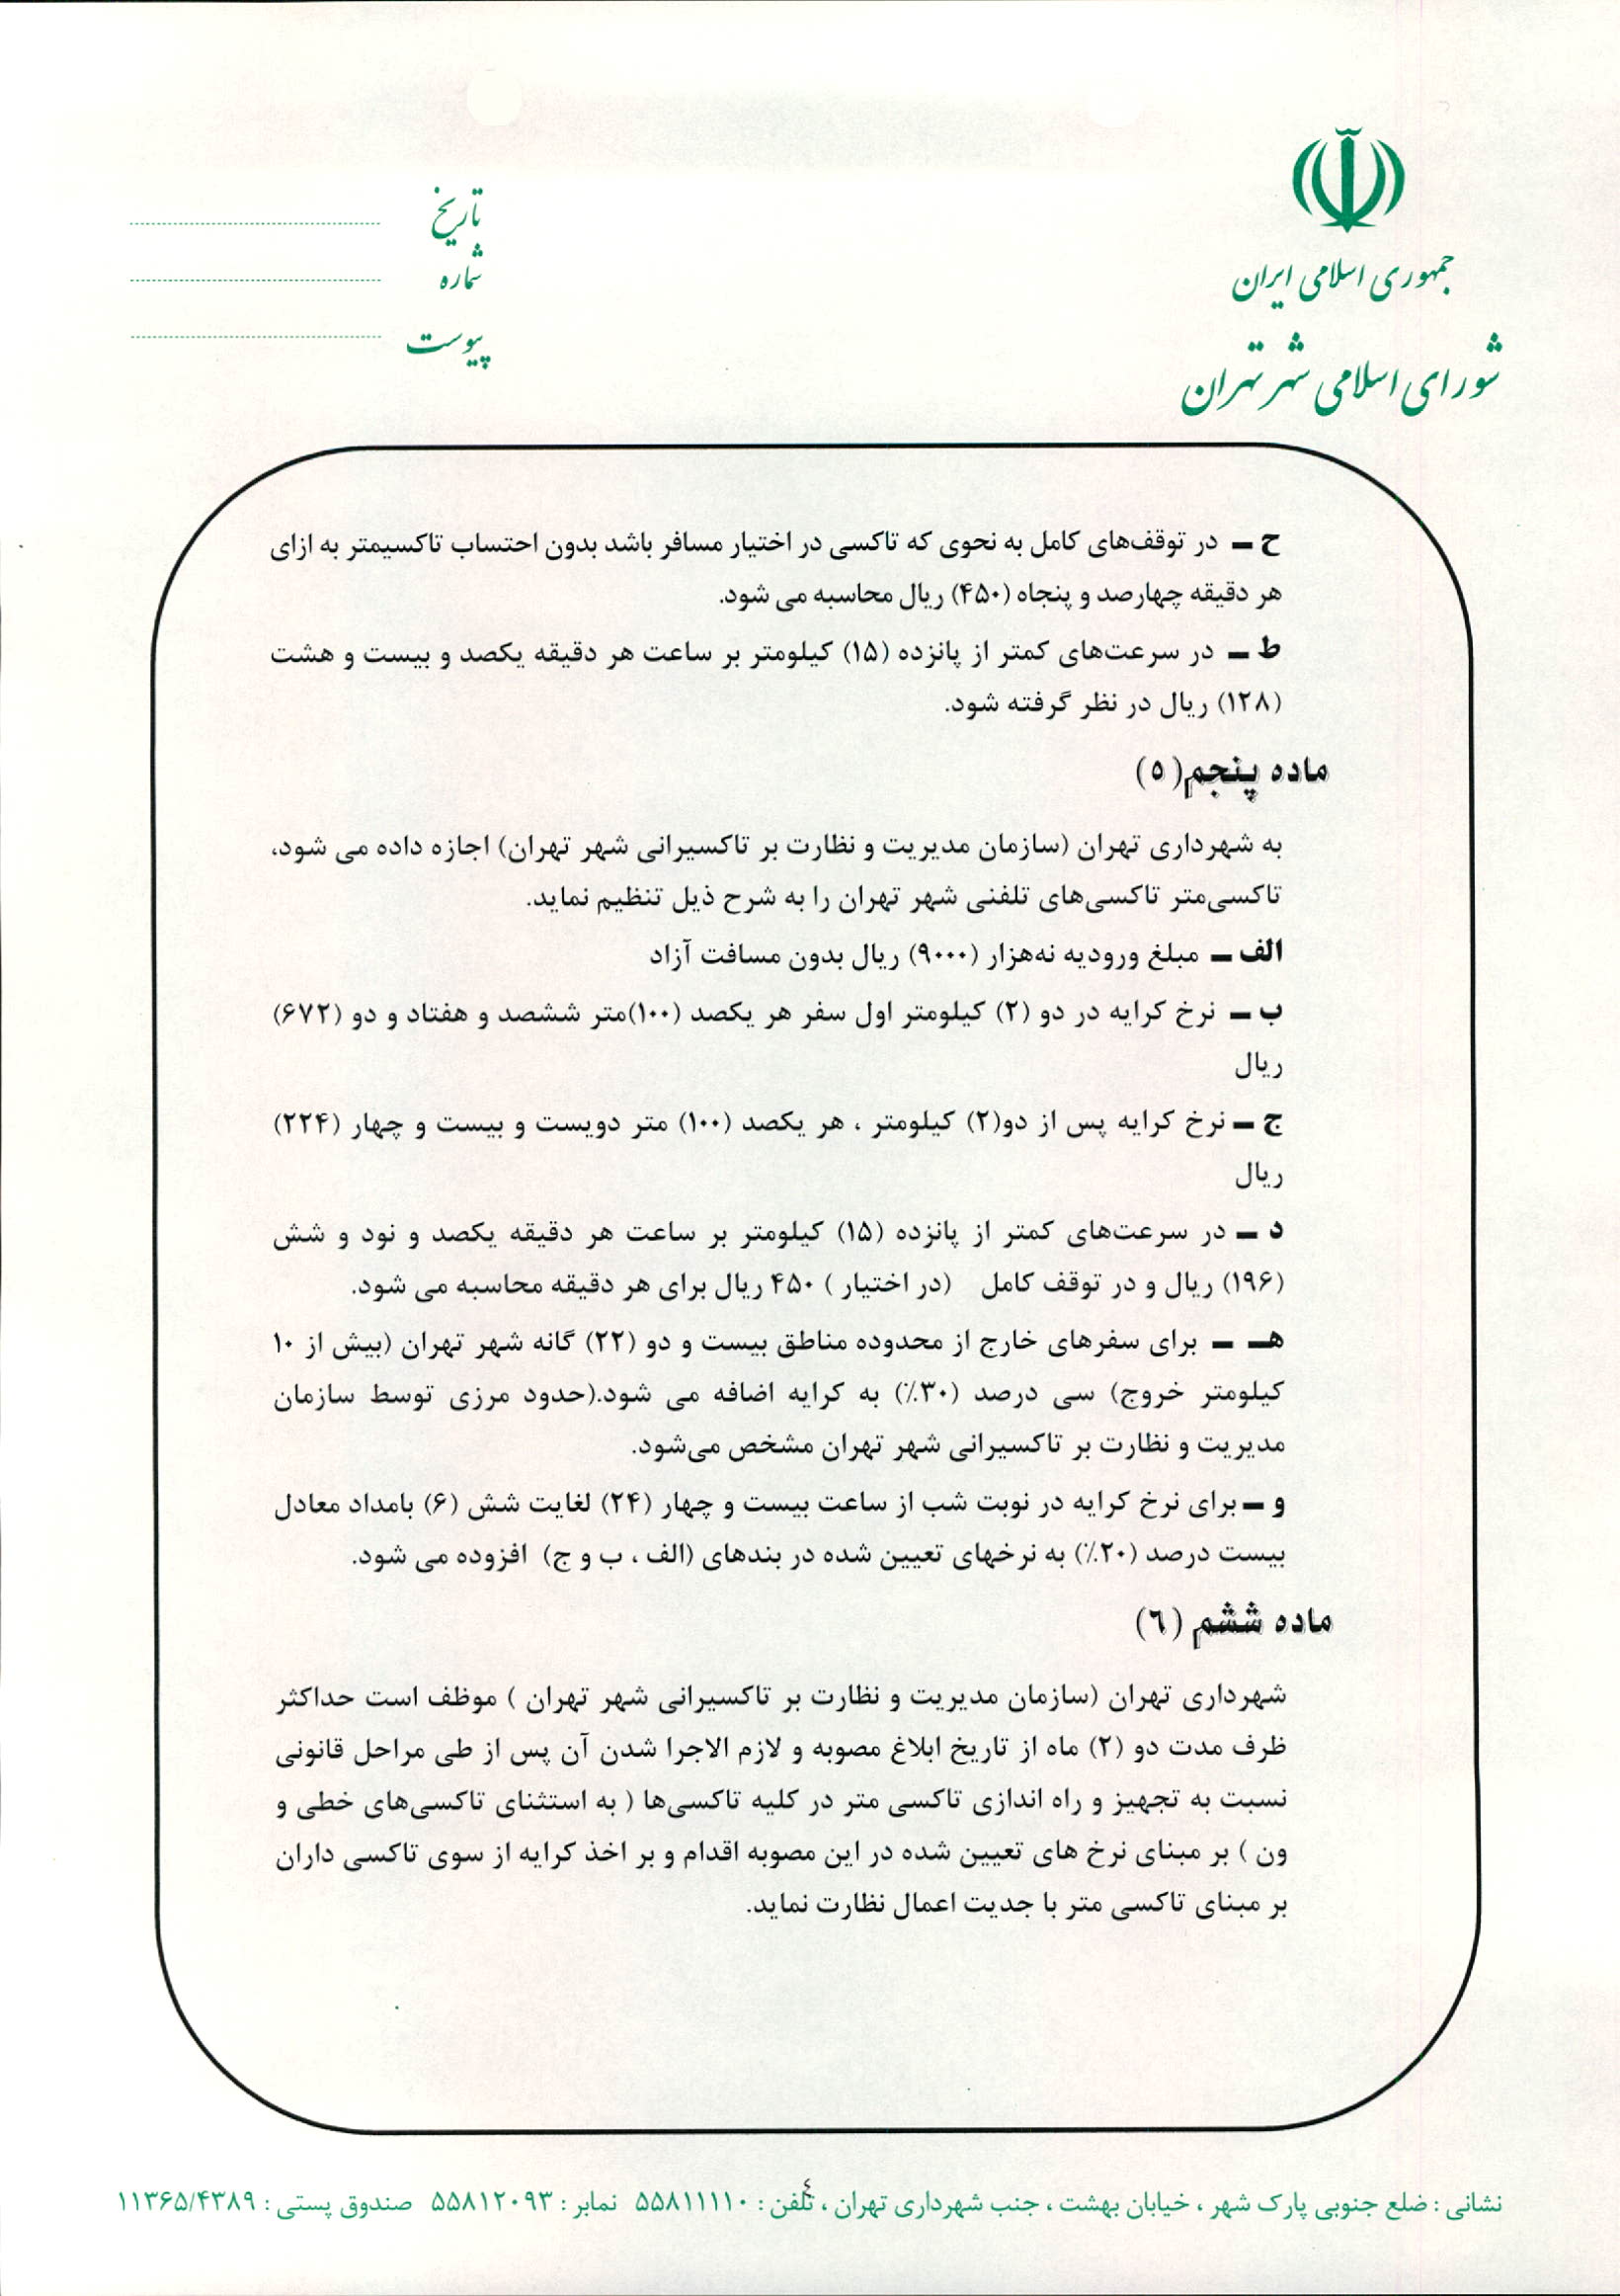 جمهوری اسلامی ایران
شورای اسلامی شهر تهران
تاریخ
شماره
پیوست
ح – در توقف‌های کامل به نحوی که تاکسی در اختیار مسافر باشد بدون احتساب تاکسیمتر به ازای
هر دقیقه چهارصد و پنجاه (۴۵۰) ریال محاسبه می شود.
ط – در سرعت‌های کمتر از پانزده (۱۵) کیلومتر بر ساعت هر دقیقه یکصد و بیست و هشت
(۱۲۸) ریال در نظر گرفته شود.
ماده پنجم(۵)
به شهرداری تهران (سازمان مدیریت و نظارت بر تاکسیرانی شهر تهران) اجازه داده می شود،
تاکسی‌متر تاکسی‌های تلفنی شهر تهران را به شرح ذیل تنظیم نماید.
الف – مبلغ ورودیه نه‌هزار (۹۰۰۰) ریال بدون مسافت آزاد
ب – نرخ کرایه در دو (۲) کیلومتر اول سفر هر یکصد (۱۰۰)متر ششصد و هفتاد و دو (۶۷۲)
ریال
ج – نرخ کرایه پس از دو(۲) کیلومتر ، هر یکصد (۱۰۰) متر دویست و بیست و چهار (۲۲۴)
ریال
د – در سرعت‌های کمتر از پانزده (۱۵) کیلومتر بر ساعت هر دقیقه یکصد و نود و شش
(۱۹۶) ریال و در توقف کامل (در اختیار ) ۴۵۰ ریال برای هر دقیقه محاسبه می شود.
هـ – برای سفرهای خارج از محدوده مناطق بیست و دو (۲۲) گانه شهر تهران (بیش از ۱۰
کیلومتر خروج) سی درصد (۳۰٪) به کرایه اضافه می شود.(حدود مرزی توسط سازمان
مدیریت و نظارت بر تاکسیرانی شهر تهران مشخص می‌شود.
و – برای نرخ کرایه در نوبت شب از ساعت بیست و چهار (۲۴) لغایت شش (۶) بامداد معادل
بیست درصد (۲۰٪) به نرخهای تعیین شده در بندهای (الف ، ب و ج) افزوده می شود.
ماده ششم (٦)
شهرداری تهران (سازمان مدیریت و نظارت بر تاکسیرانی شهر تهران ) موظف است حداکثر
ظرف مدت دو (۲) ماه از تاریخ ابلاغ مصوبه و لازم الاجرا شدن آن پس از طی مراحل قانونی
نسبت به تجهیز و راه اندازی تاکسی متر در کلیه تاکسی‌ها ( به استثنای تاکسی‌های خطی و
ون ) بر مبنای نرخ های تعیین شده در این مصوبه اقدام و بر اخذ کرایه از سوی تاکسی داران
بر مبنای تاکسی متر با جدیت اعمال نظارت نماید.
٤
نشانی : ضلع جنوبی پارک شهر ، خیابان بهشت ، جنب شهرداری تهران ، تلفن : ۵۵۸۱۱۱۱۰ نمابر : ۵۵۸۱۲۰۹۳ صندوق پستی : ۱۱۳۶۵/۴۳۸۹